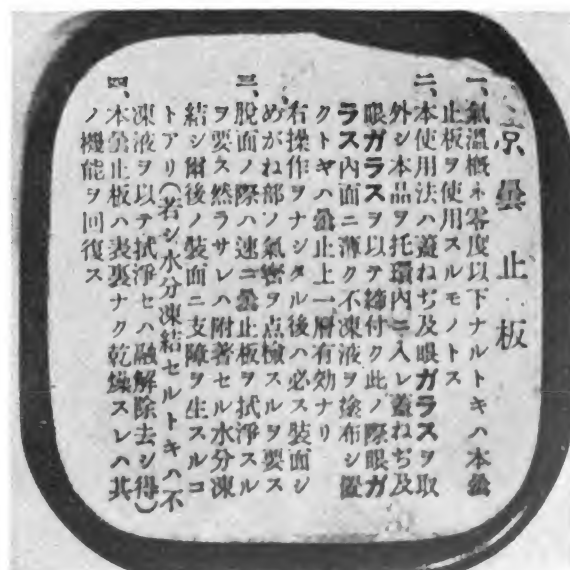 京曇止板
一、氣溫概ネ零度以下ナルトキハ本曇
止板ヲ使用スルモノトス
二、本使用法ハ蓋ねぢ及眼ガラスヲ取
外シ本品ヲ托環内ニ入レ蓋ねぢ及
眼ガラスヲ以テ締付ク此ノ際眼ガ
ラス内面ニ薄ク不凍液ヲ塗布シ置
クトキハ曇止上一層有効ナリ
右操作ヲナシタル後ハ必ス裝面シ
めがね部ノ氣密ヲ点檢スルヲ要ス
三、脱面ノ際ハ速ニ曇止板ヲ拭淨スル
ヲ要ス然ラサレハ附著セル水分凍
結シ爾後ノ裝面ニ支障ヲ生スルコ
トアリ(若シ水分凍結セルトキハ不
凍液ヲ以テ拭淨セハ融解除去シ得)
四、本曇止板ハ表裏ナク乾燥スレハ其
ノ機能ヲ回復ス